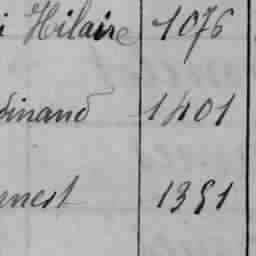 i Hilaire 1076
dinand 1401
enest 1351